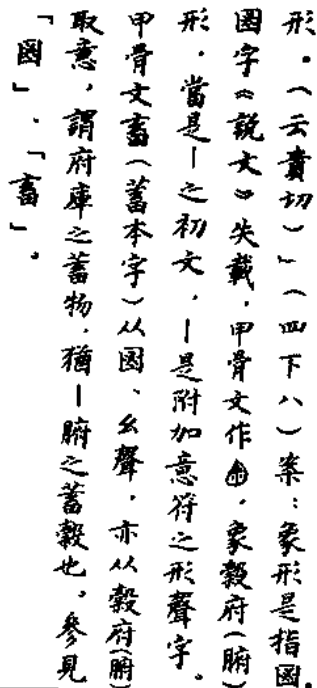 形。(云貴切)」(四下八)案:象形是指𡇒。
𡇒字《說文》失載,甲骨文作,象穀府(腑)
形,當是—之初文,—是附加意符之形聲字。
甲骨文畜(蓄本字)从𡇒、幺聲,亦从穀府(腑)
取意,謂府庫之蓄物,猶—腑之蓄穀也。參見
「𡇒」、「畜」。